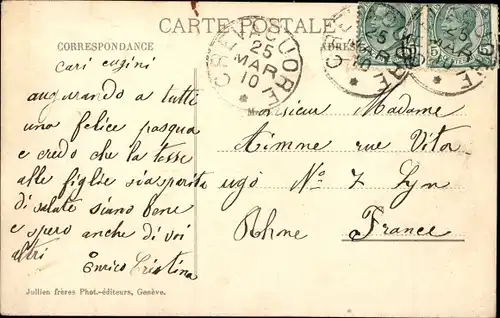 CARTE POSTALE
CORRESPONDANCE
ADRES
25
MAR
10
25
MAR
10
25
MAR
5
5
cari cugini
augurando a tutti
una felice pasqua
e credo che la tosse
alle figlie sia sparita
di salute siamo bene
e spero anche di voi
altri
Enrico Cristina
Monsieur Madame
Aimne rue Vito
ugo No 7 Lyn
Rhone France
Jullien frères Phot.-éditeurs, Genève.